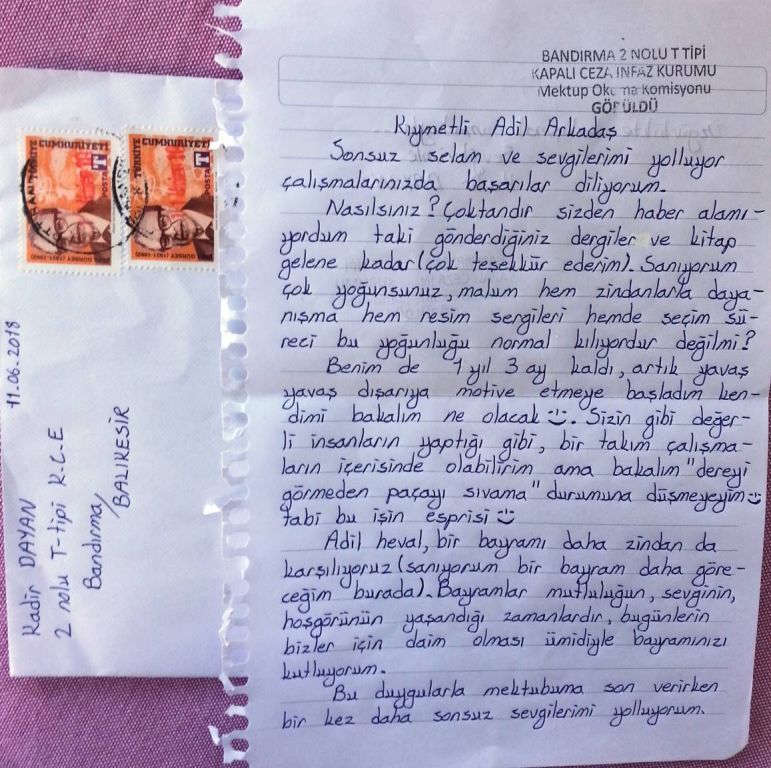 BANDIRMA 2 NOLU T TİPİ
KAPALI CEZA İNFAZ KURUMU
Mektup Okuma Komisyonu
GÖRÜLDÜ
Kıymetli Adil Arkadaş
Sonsuz selam ve sevgilerimi yolluyor
çalışmalarınızda başarılar diliyorum.
Nasılsınız? Çoktandır sizden haber alamı-
yordum taki gönderdiğiniz dergiler ve kitap
gelene kadar (çok teşekkür ederim). Sanıyorum
çok yoğunsunuz, malum hem zindanlarla daya-
nışma hem resim sergileri hemde seçim sü-
reci bu yoğunluğu normal kılıyordur değilmi?
Benim de 1 yıl 3 ay kaldı, artık yavaş
yavaş dışarıya motive etmeye başladım ken-
dimi bakalım ne olacak :). Sizin gibi değer-
li insanların yaptığı gibi, bir takım çalışma-
ların içerisinde olabilirim ama bakalım "dereyi
görmeden paçayı sıvama" durumuna düşmeyeyim :)
tabi bu işin esprisi :)
Adil heval, bir bayramı daha zindan da
karşılıyoruz (sanıyorum bir bayram daha göre-
ceğim burada). Bayramlar mutluluğun, sevginin,
hoşgörünün yaşandığı zamanlardır, bugünlerin
bizler için daim olması ümidiyle bayramınızı
kutluyorum.
Bu duygularla mektubuma son verirken
bir kez daha sonsuz sevgilerimi yolluyorum.
TÜRKİYE
CUMHURİYETİ
POSTA
GÜRSEY (1921-1992)
TÜRKİYE
CUMHURİYETİ
POSTA
GÜRSEY (1921-1992)
11.06.2018
Kadir DAYAN
2 nolu T-tipi K.C.E
Bandırma/
BALIKESİR